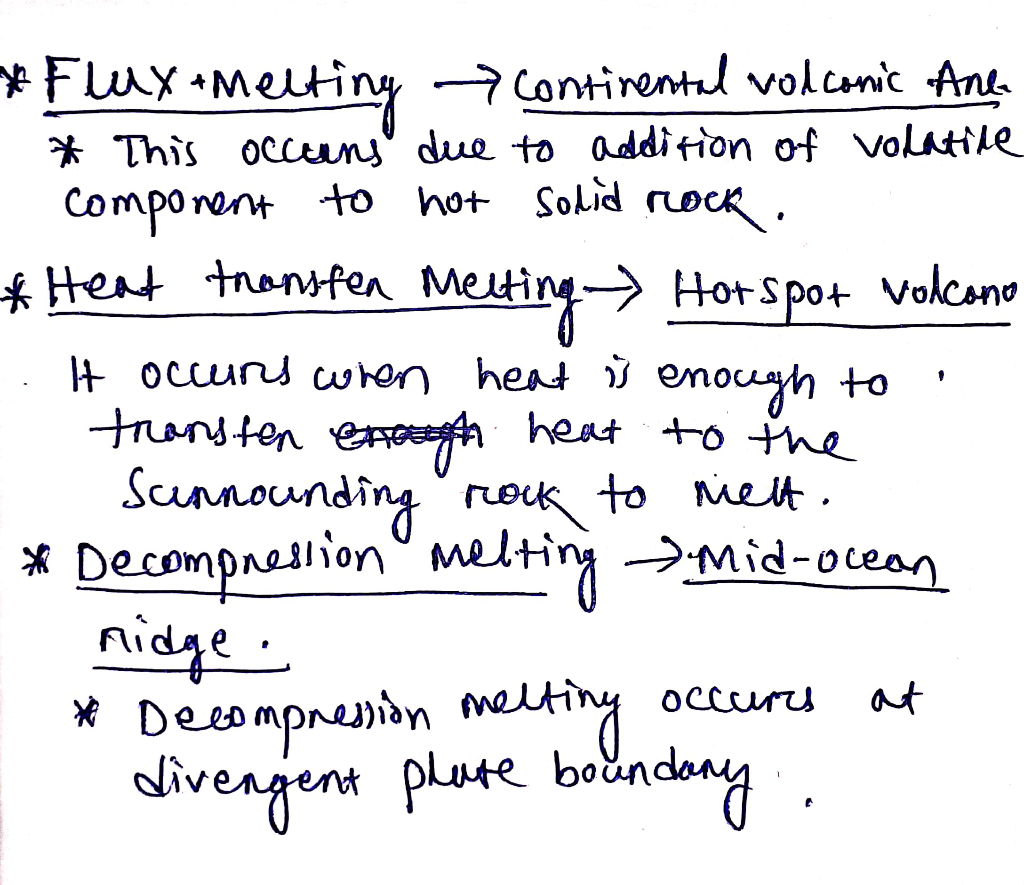 * Flux Melting → Continental volcanic Arc
* This occurs due to addition of volatile
component to hot solid rock.
* Heat transfer Melting → Hotspot volcano
It occurs when heat is enough to
transfer enough heat to the
Surrounding rock to melt.
* Decompression melting → Mid-ocean
ridge.
* Decompression melting occurs at
divergent plate boundary.